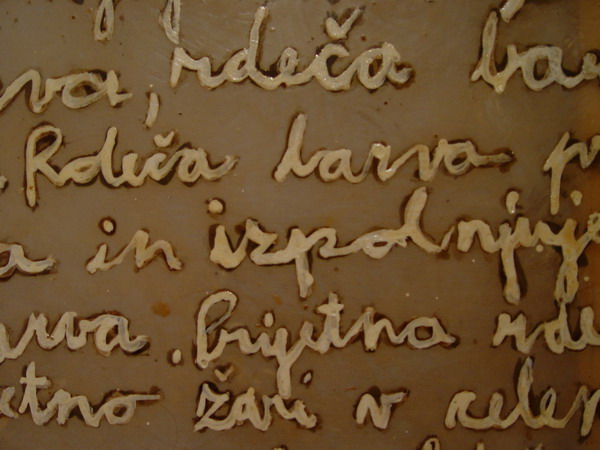 va, rdeča ba
. Rdeča barva pr
a in izpolnjuje
arva. Prijetna rde
etno žari v cele